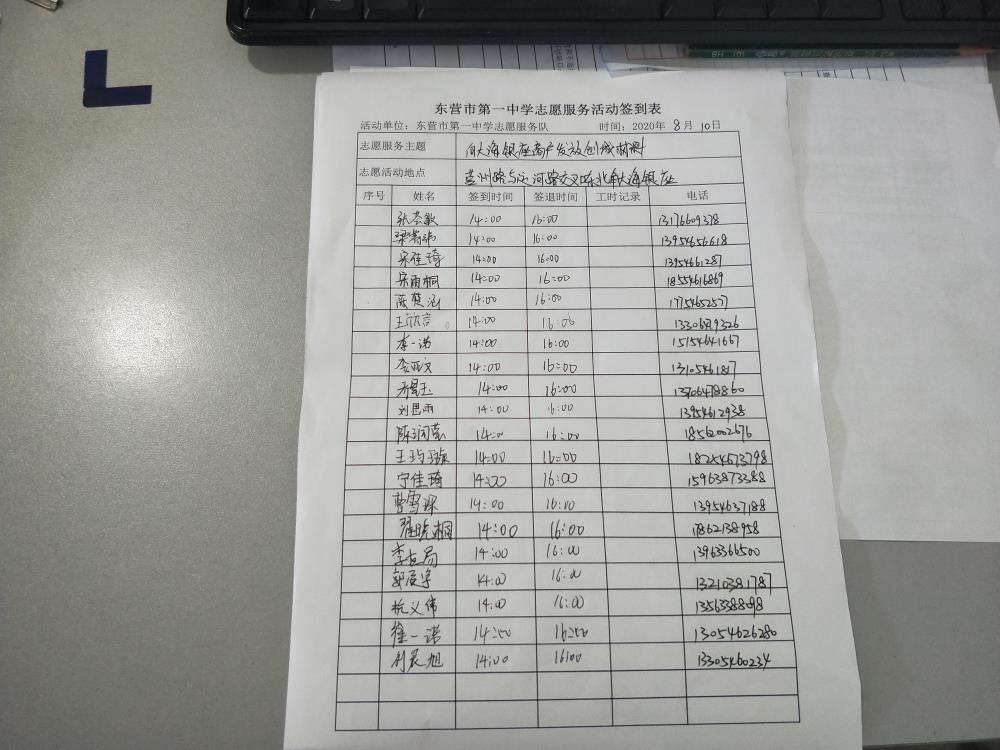 东营市第一中学志愿服务活动签到表
活动单位：东营市第一中学志愿服务队 时间：2020年 8月 10日
志愿服务主题 向大海银座商户发放创城材料
志愿活动地点 路与运河路交叉口东北角大海银座
序号 姓名 签到时间 签退时间 工时记录 电话
14:00 16:00 13176609378
14:00 16:00 13954656618
宋佳琦 14:00 16:00 13954661287
宋雨桐 14:00 16:00 18554616869
14:00 16:00 17754652577
王欣言 14:00 16:00
李一诺 14:00 16:00 15154641667
李亚文 14:00 16:00
14:00 16:00 13706478860
刘思雨 14:00 16:00 13954612938
陈润 14:00 16:00 18562002676
王玙璇 14:00 16:00 18254673798
宁佳琦 14:00 16:00 15963873388
曹雪琛 14:00 16:10 13954637188
翟晓桐 14:00 16:00
14:00 16:00 13963366500
14:00 16:00 13210381787
杭义伟 14:00 16:00 13563388098
徐一诺 13054626280
刘晨旭 14:00 16:00 13305460234